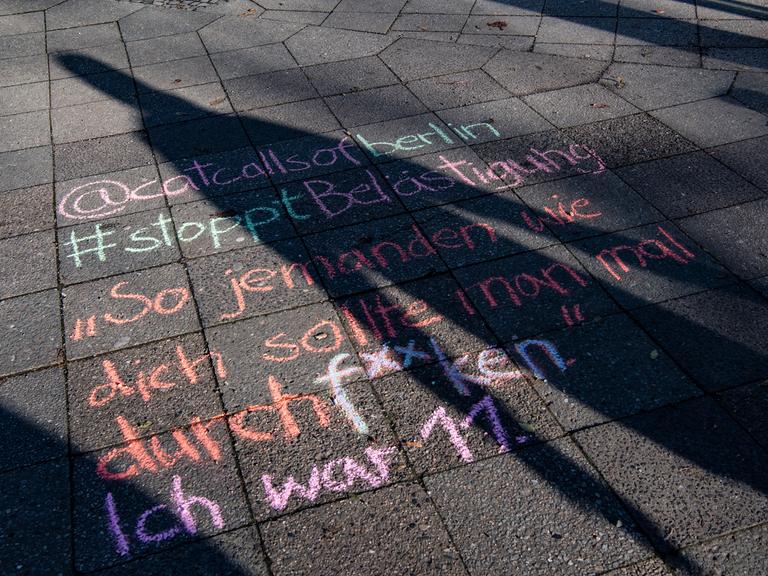 @catcallsofberlin
#stopptBelästigung
„So jemanden wie
dich sollte man mal
durchfxxken"
Ich war 11.